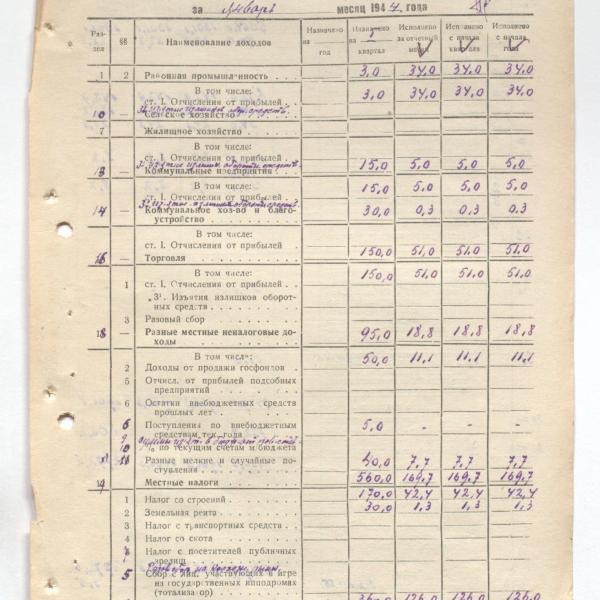 за январь месяц 1944 года
Раздел §§ Наименование доходов Назначено на год Назначено на I квартал Исполнено за отчетный месяц Исполнено с начала квартала Исполнено с начала года
1 2 Районная промышленность 3,0 34,0 34,0 34,0
В том числе:
ст. 1. Отчисления от прибылей 3,0 34,0 34,0 34,0
10 — Сельское хозяйство
7 Жилищное хозяйство
В том числе:
ст. 1. Отчисления от прибылей
13 — Коммунальные предприятия 15,0 5,0 5,0 5,0
В том числе:
ст. 1. Отчисления от прибылей 15,0 5,0 5,0 5,0
14 — Коммунальное хоз-во и благоустройство 30,0 0,3 0,3 0,3
В том числе:
ст. 1. Отчисления от прибылей
16 — Торговля 150,0 51,0 51,0 51,0
В том числе:
1 ст. 1. Отчисления от прибылей 150,0 51,0 51,0 51,0
„3¹. Изъятия излишков оборотных средств
3 Разовый сбор
18 — Разные местные неналоговые доходы 95,0 18,8 18,8 18,8
В том числе: 50,0 11,1 11,1 11,1
2 Доходы от продажи госфондов
5 Отчисл. от прибылей подсобных предприятий
6 Остатки внебюджетных средств прошлых лет
8 Поступления по внебюджетным средствам тек. года 5,0 - - -
% по текущим счетам и бюджета
Разные мелкие и случайные поступления 40,0 7,7 7,7 7,7
19 Местные налоги 560,0 169,7 169,7 169,7
1 Налог со строений 170,0 42,4 42,4 42,4
2 Земельная рента 30,0 1,3 1,3 1,3
3 Налог с транспортных средств
4 Налог со скота
Налог с посетителей публичных зрелищ
5 Сбор с лиц, участвующих в игре на государственных ипподромах (тотализатор)
360,0 126,0 126,0 126,0